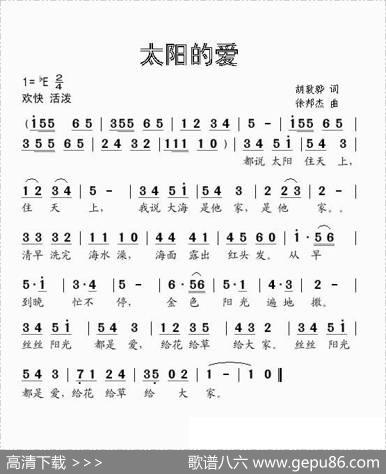 太阳的爱
1=♭E 2/4
胡敦骅 词
欢快 活泼
徐邦杰 曲
(i55 65 | 355 65 | 12 34 | 5 - | i55 65 |
355 65 | 24 32 | 111 10) | 34 5i | 54 3 |
都说太阳 住天上,
12 34 | 5 - | 34 5i | 54 3 | 2 23 | 2 - |
住 天 上, 我说大海 是他 家, 是 他 家。
33 32 | 10 50 | 34 44 | 45 60 | i·56 |
清早洗完 海水澡, 海面 露出 红头发。 从 早
5·i | 3 - | 6·56 | 5i 34 | 2 - |
到晚 忙不 停, 金 色 阳光 遍地 撒。
34 5i | 54 3 | 24 35 | 02 1 | 34 5i |
丝丝 阳光 都是 爱, 给花给草 给大家。 丝丝 阳光
54 3 | 71 24 | 35 02 | 1 - | 1 0 ‖
都是爱,给花给草 给 大 家。
高清下载 >>>
歌谱八六 www.gepu86.com